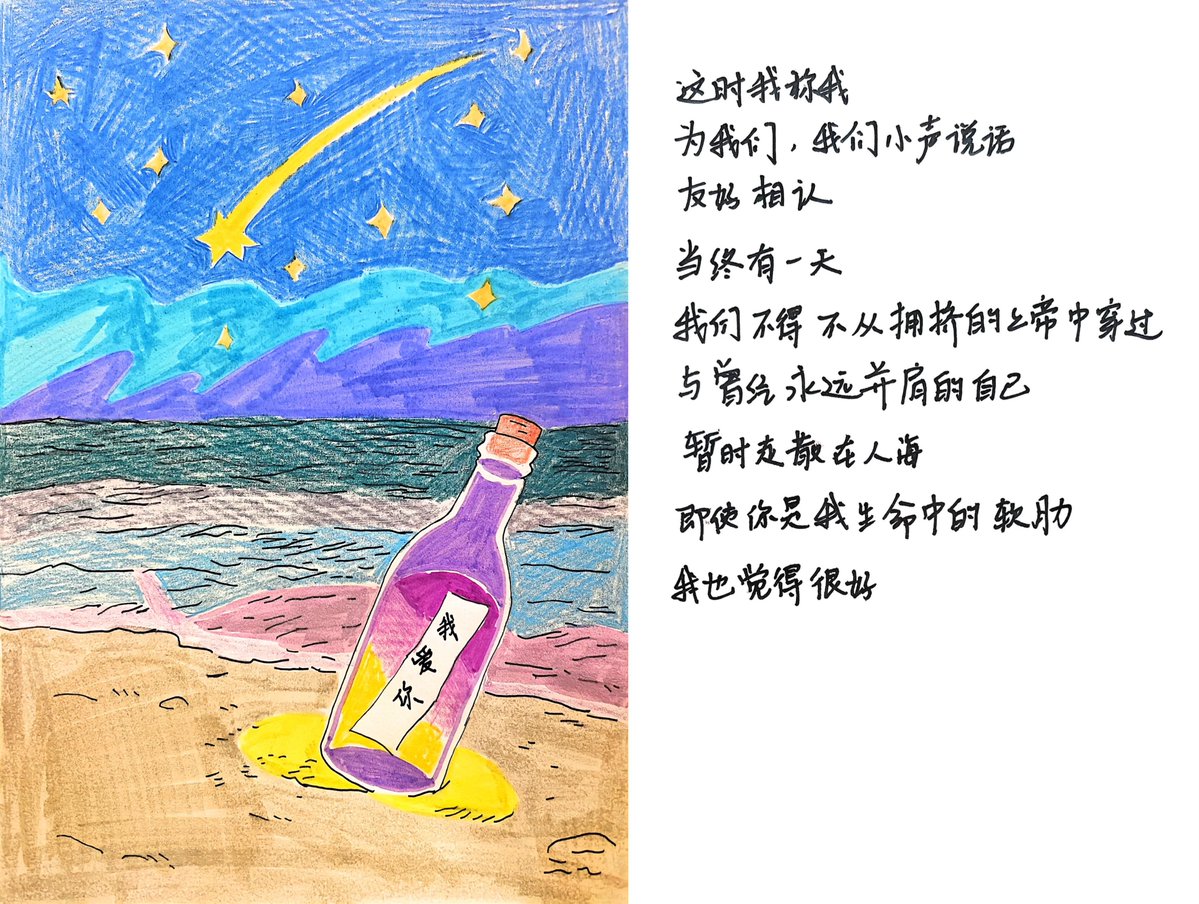 我爱你
这时我称我
为我们，我们小声说话
友好相认
当终有一天
我们不得不从拥挤的上帝中穿过
与曾经永远并肩的自己
暂时走散在人海
即使你是我生命中的软肋
我也觉得很好